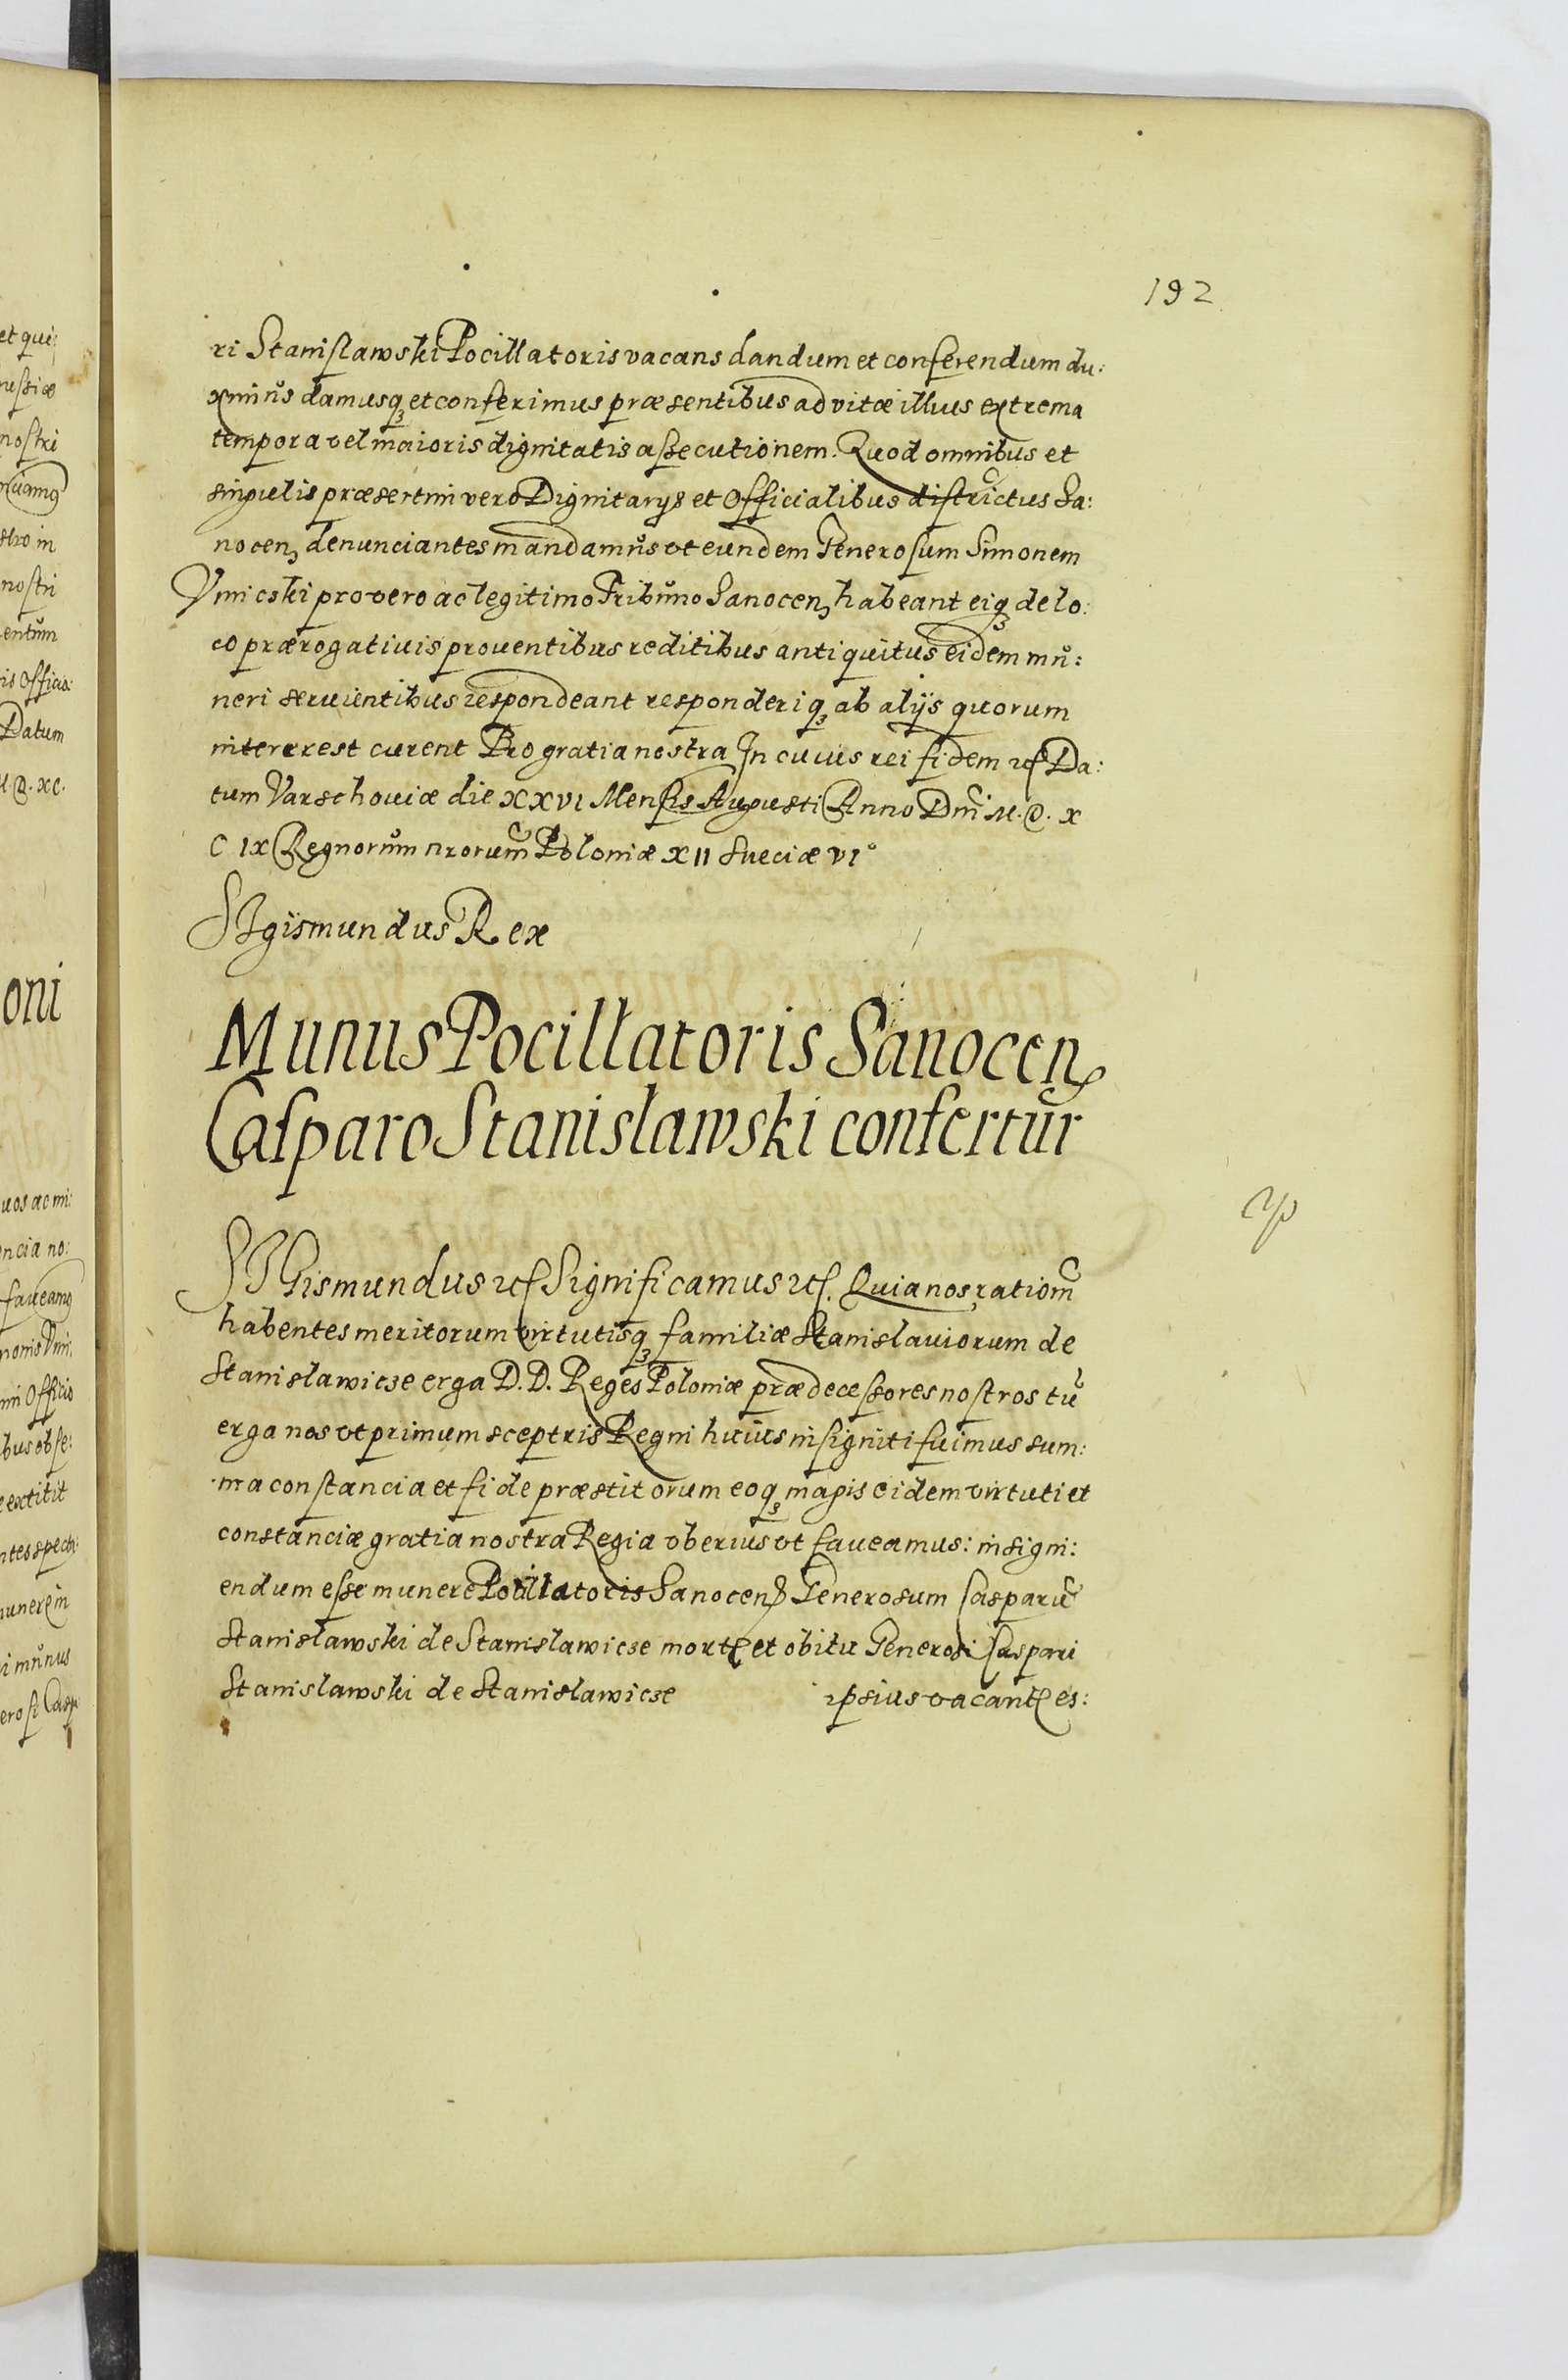 192
ri Stanislawski Pocillatoris vacans dandum et conferendum du:
ximus damusq₃ et conferimus præsentibus ad vitæ illius extrema
tempora vel maioris dignitatis assecutionem. Quod omnibus et
singulis præsertim vero Dignitarijs et Officialibus districtus Sa:
nocen₃ denunciantes mandamus vt eundem Generosum Simonem
Vmieski pro vero ac legitimo Tribuno Sanocen₃ habeant eiq₃ de lo:
co prærogativis proventibus reditibus antiquitus eidem mu:
neri servientibus respondeant responderiq₃ ab alijs quorum
interrest curent Pro gratia nostra In cuius rei fidem etc Da:
tum Varschoviæ die XXVI Mensis Augusti Anno Dni M. D. X
C IX Regnorum nrorum Poloniæ XII Sueciæ VI°
SIgismundus Rex
Munus Pocillatoris Sanocen₃
Casparo Stanislawski confertur
SIGismundus etc Significamus etc. Quia nos rationē
habentes meritorum virtutisq₃ familiæ Stanislaviorum de
Stanislawicze erga D. D. Reges Poloniæ prædecessores nostros tū
erga nos vt primum sceptris Regni huius insigniti fuimus sum:
ma constancia et fide præstitorum eoq₃ magis eidem virtuti et
constanciæ gratia nostra Regia vberius vt faveamus: insigni:
endum esse munere Pocillatoris Sanocen₃ Generosum Casparū
Stanislawski de Stanislawicze morte et obitu Generosi Caspari
Stanislawski de Stanislawicze ipsius vacante es: